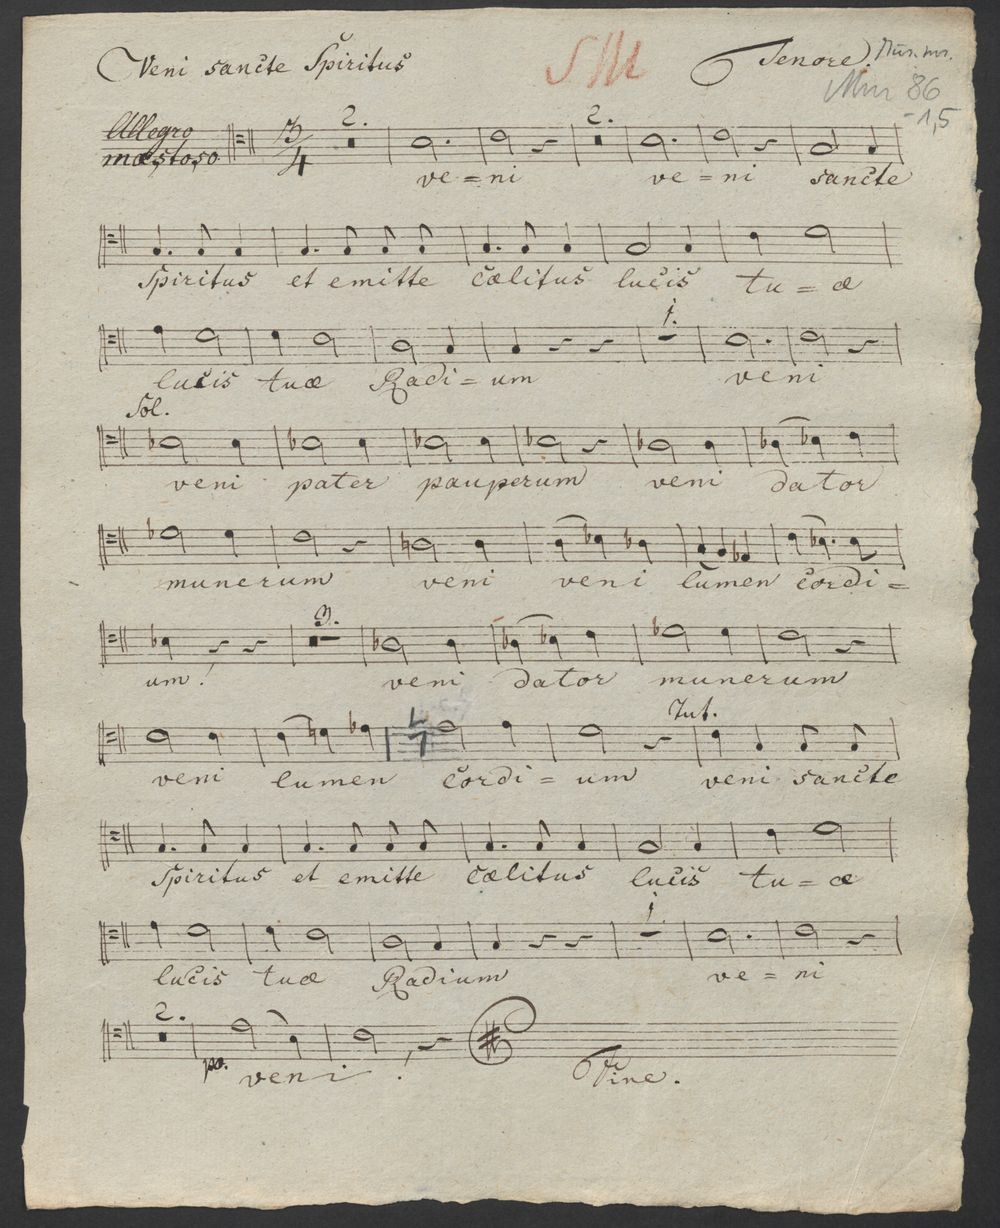 Veni sancte Spiritus
SM
Tenore.
Mus. ms.
Mm 86
-1,5
Allegro
maestoso
3/4
2.
2.
ve=ni ve=ni sancte
Spiritus et emitte cælitus lucis tu=æ
1.
lucis tuæ Radi=um veni
Sol.
veni pater pauperum veni dator
munerum veni veni lumen cordi=
3.
um! veni dator munerum
Tut.
veni lumen cordi=um veni sancte
Spiritus et emitte cælitus lucis tu=æ
1.
lucis tuæ Radium ve=ni
2.
po.
veni!
Fine.